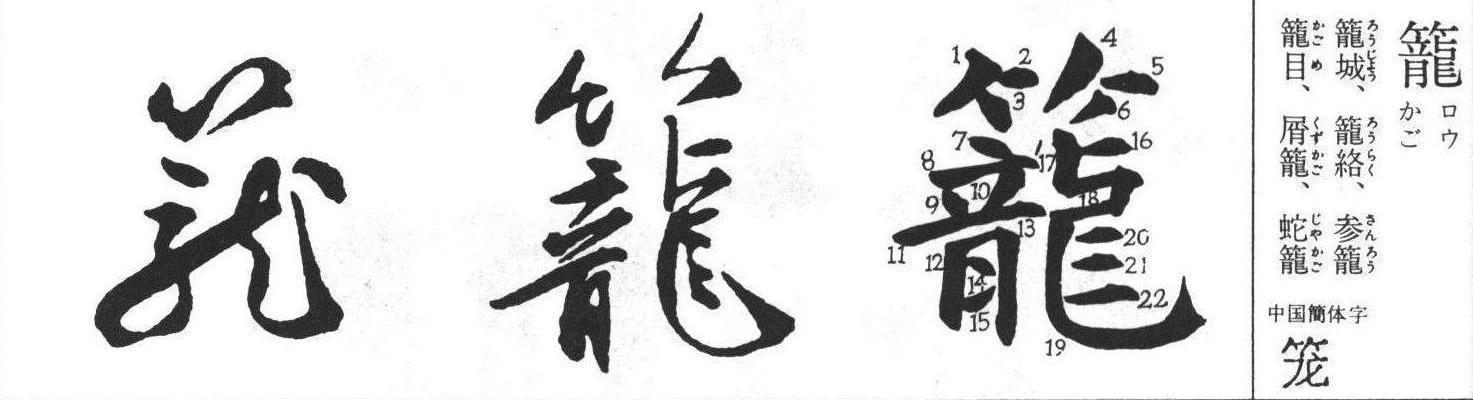 籠
ロウ
かご
籠城、籠絡、参籠
ろうじよう ろうらく さんろう
籠目、屑籠、蛇籠
かごめ くずかご じやかご
中国簡体字
笼
籠
1 2 3 4 5 6 7 8 9 10 11 12 13 14 15 16 17 18 19 20 21 22
籠
籠